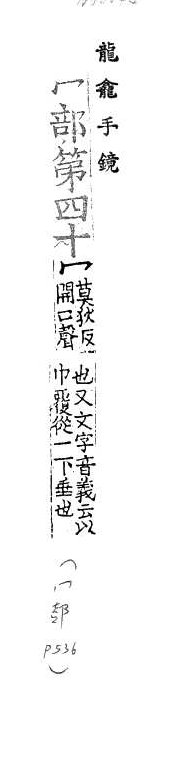 龍龕手鏡
冖部第四十
冖莫狄反開口聲
也又文字音義云以
巾覆從一下垂也
(冖部
P536)